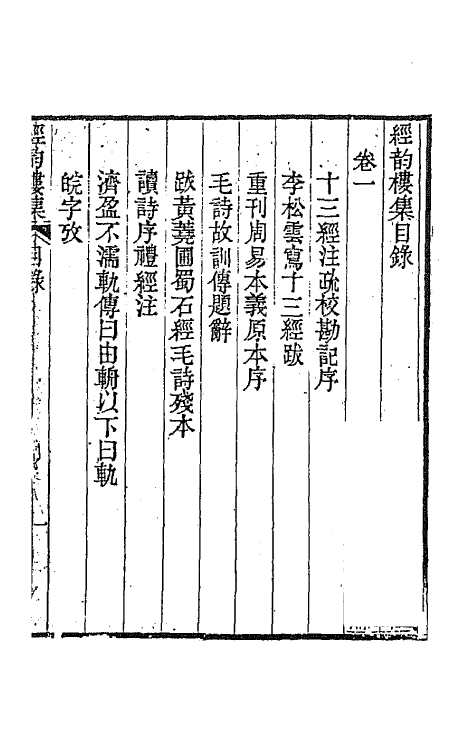 經韵樓集目錄
卷一
十三經注疏校勘記序
李松雲寫十三經跋
重刊周易本義原本序
毛詩故訓傳題辭
跋黃蕘圃蜀石經毛詩殘本
讀詩序禮經注
濟盈不濡軌傳曰由輈以下曰軌
皖字攷
經韵樓集 目錄